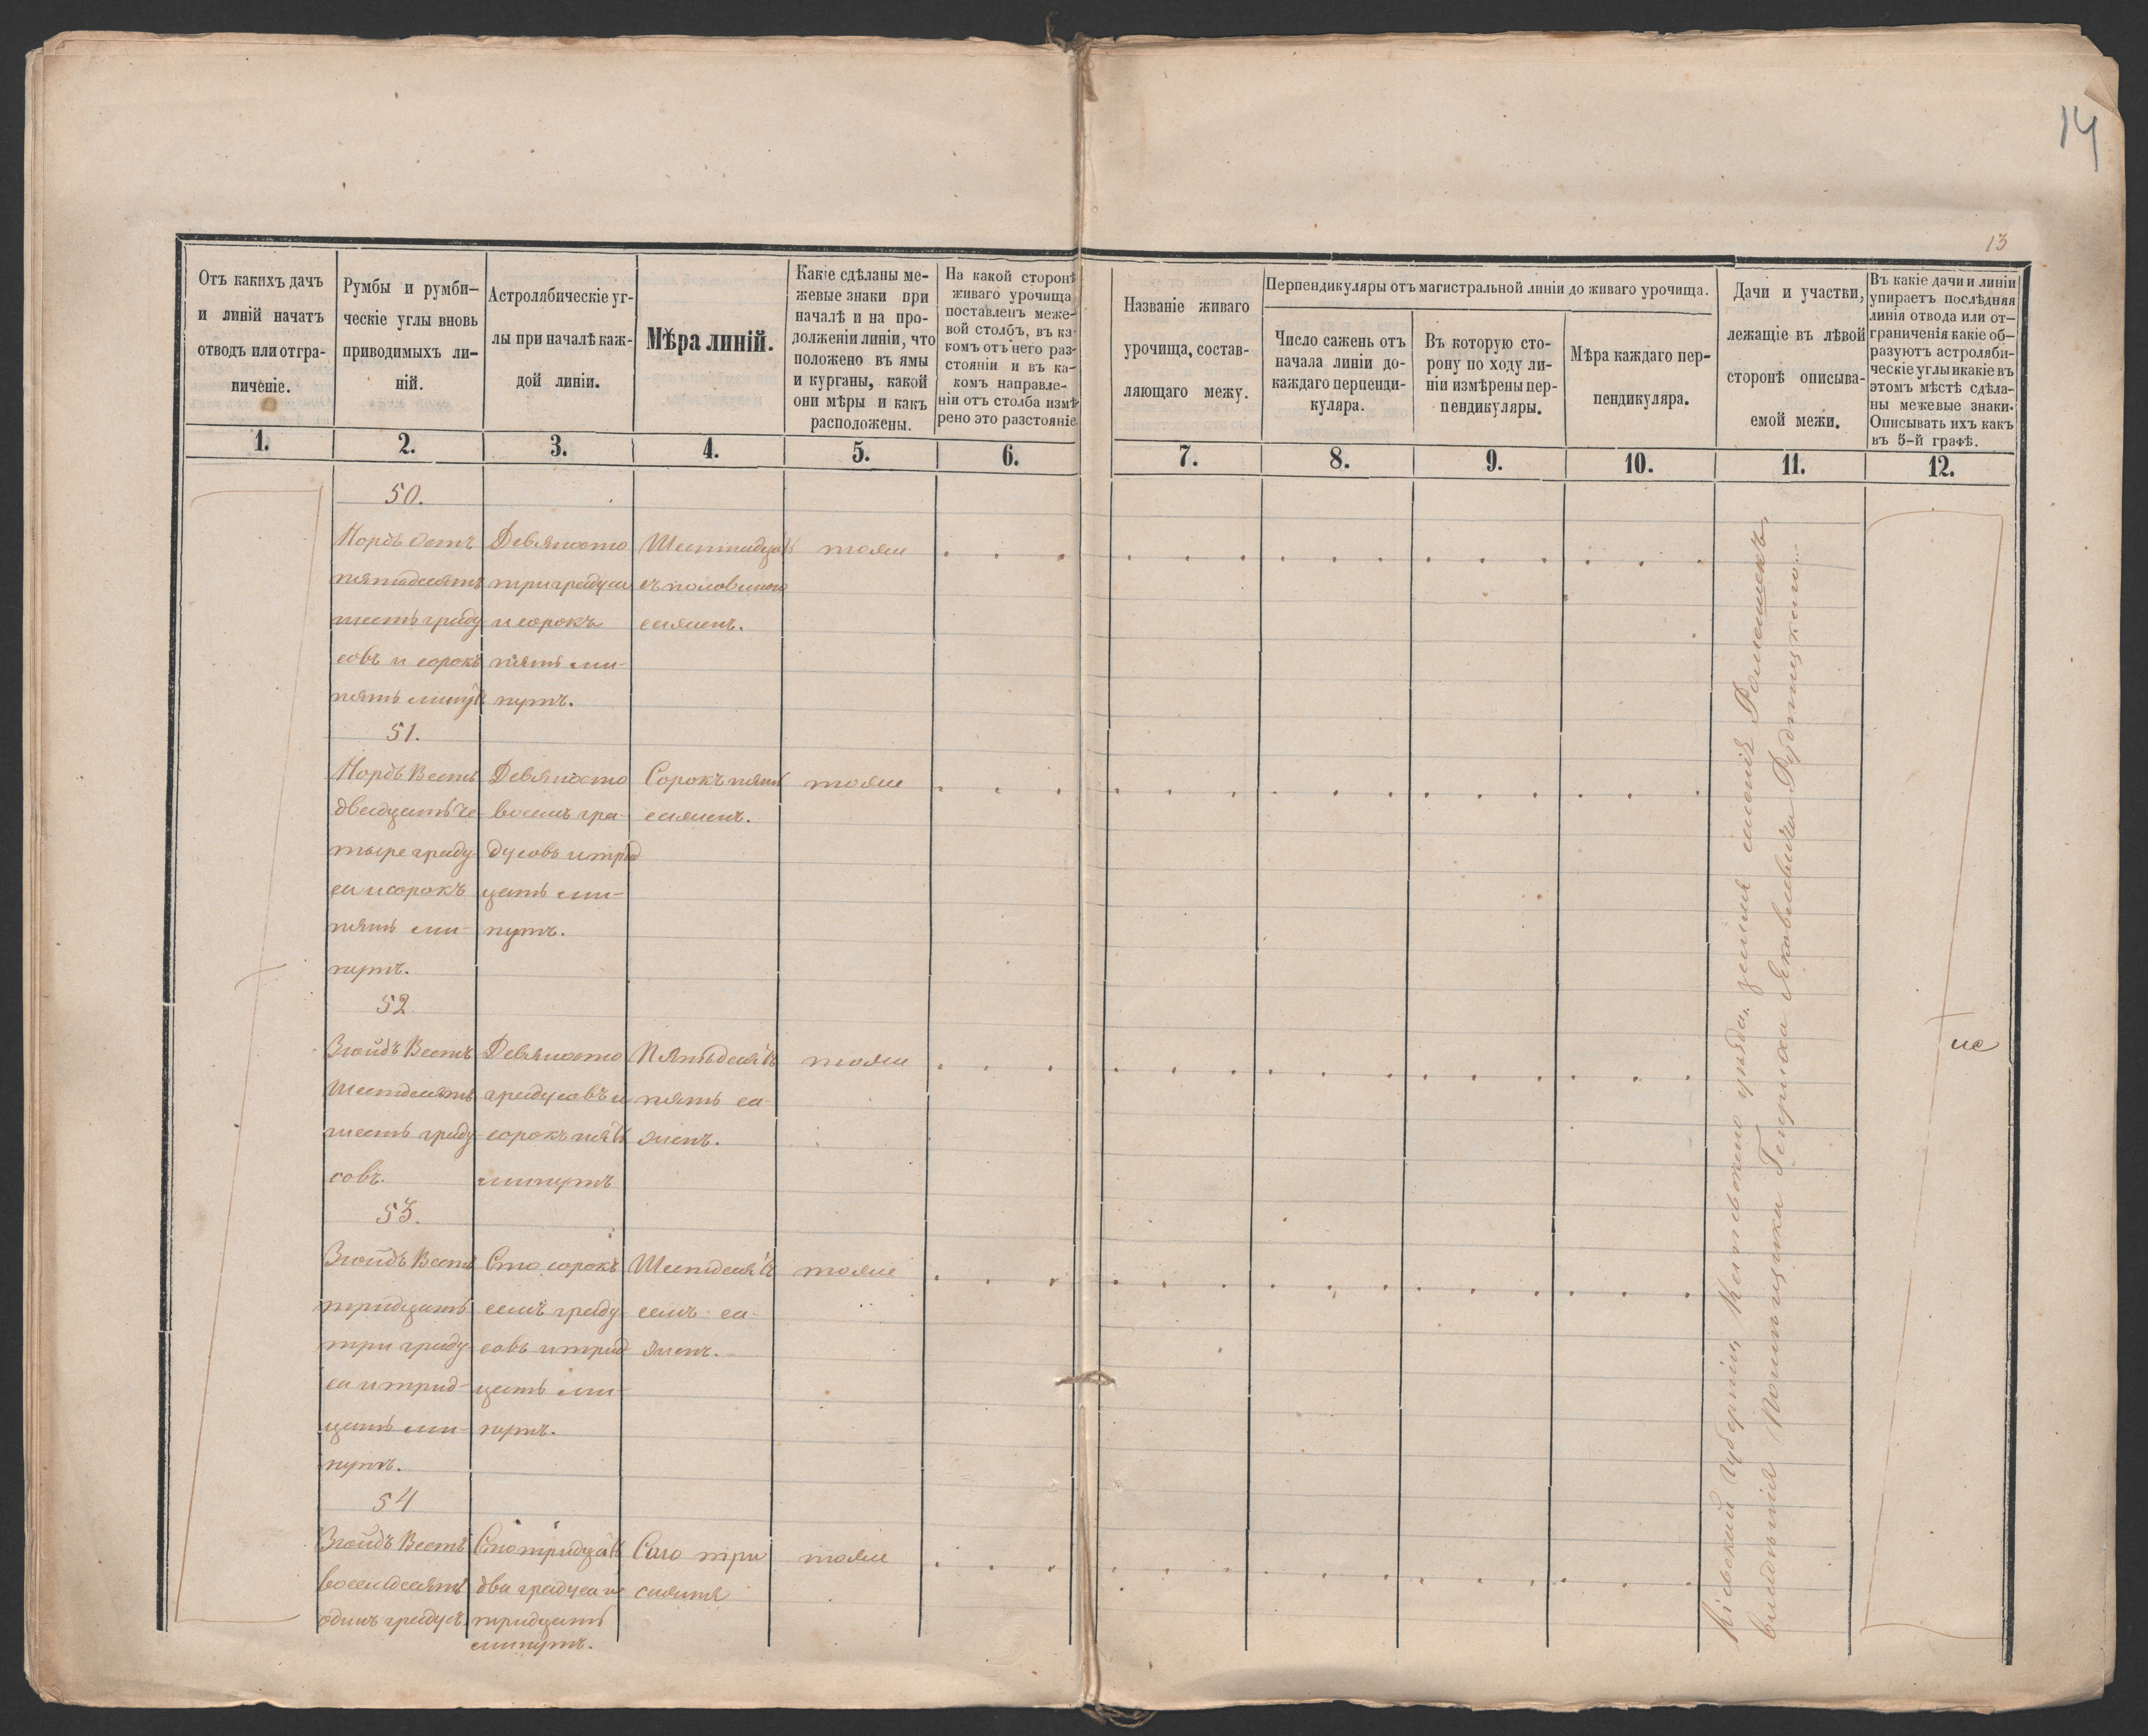 14
13
Отъ какихъ дачъ
и линій начатъ
отводъ или отгра-
ниченіе.
Румбы и румби-
ческіе углы вновь
приводимыхъ ли-
ній.
Астролябическіе уг-
лы при началѣ каж-
дой линіи.
Мѣра линій.
Какіе сдѣланы ме-
жевые знаки при
началѣ и на про-
долженіи линіи, что
положено въ ямы
и курганы, какой
они мѣры и какъ
расположены.
На какой сторонѣ
живаго урочища
поставленъ меже-
вой столбъ, въ ка-
комъ отъ него раз-
стояніи и въ ка-
комъ направле-
ніи отъ столба измѣ-
рено это разстояніе
Названіе живаго
урочища, состав-
ляющаго межу.
Перпендикуляры отъ магистральной линіи до живаго урочища.
Число сажень отъ
начала линіи до-
каждаго перпенди-
куляра.
Въ которую сто-
рону по ходу ли-
ніи измѣрены пер-
пендикуляры.
Мѣра каждаго пер-
пендикуляра.
Дачи и участки,
лежащіе въ лѣвой
сторонѣ описыва-
емой межи.
Въ какіе дачи и линіи
упираетъ послѣдняя
линія отвода или от-
граниченія какіе об-
разуютъ астроляби-
ческіе углы и какіе въ
этомъ мѣстѣ сдѣла-
ны межевые знаки.
Описывать ихъ какъ
въ 5-й графѣ.
1.
2.
3.
4.
5.
6.
7.
8.
9.
10.
11.
12.
50.
Нордъ Остъ
пятьдесятъ
шесть граду
совъ и сорокъ
пять минутъ
Девяносто
три градуса
и сорокъ
пять ми-
нутъ.
Шестнадцать
съ половиною
сажень.
тоже
51.
Нордъ Вестъ
двадцать че-
тыре граду-
са и сорокъ
пять ми-
нутъ.
Девяносто
восемь гра-
дусовъ и трид
цать ми-
нутъ.
Сорокъ пять
сажень.
тоже
52
Зюйдъ Вестъ
Шестдесятъ
шесть граду-
совъ.
Девяносто
градусовъ и
сорокъ пять
минутъ
Пятьдесятъ
пять са-
жень.
тоже
53.
Зюйдъ Вестъ
тридцать
три граду-
са и трид-
цать ми-
нутъ.
Сто сорокъ
семь граду-
совъ и трид
цать ми-
нутъ.
Шестдесятъ
семь са-
жень.
тоже
54
Зюйдъ Вестъ
восемдесятъ
одинъ градусъ.
Сто тридцать
два градуса и
тридцать
минутъ.
Сто три
сажня
тоже
Кіевской губерніи, уѣзда, земля имѣнія
владѣнія Помѣщика Генриха Яковлевича